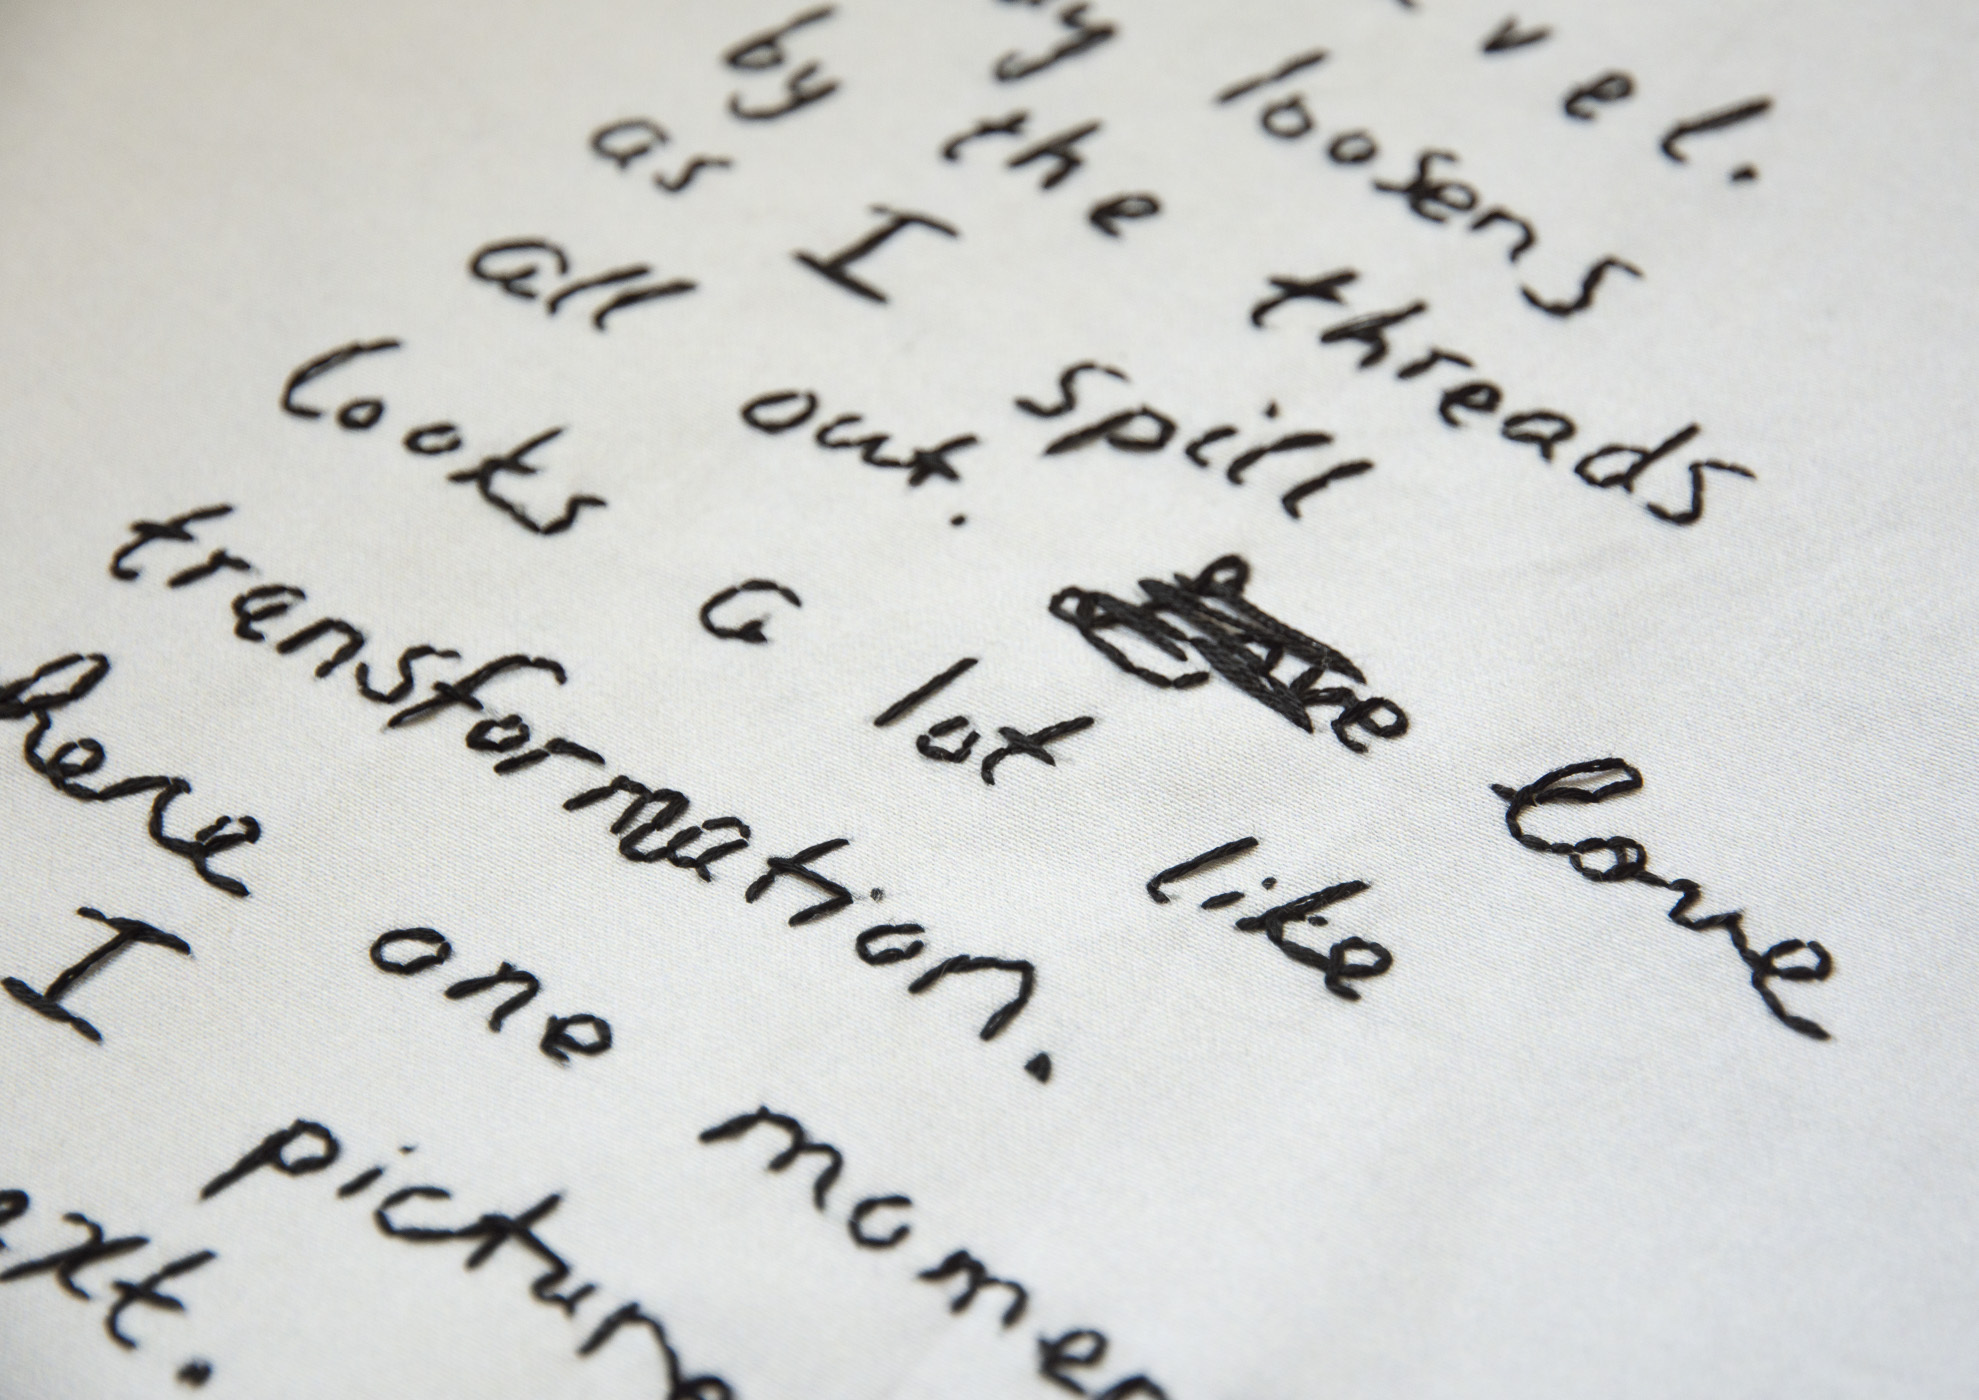 vel.
loosens
by the threads
as I spill
all out. love
looks a lot like
transformation.
here one momen
I picture
ext.